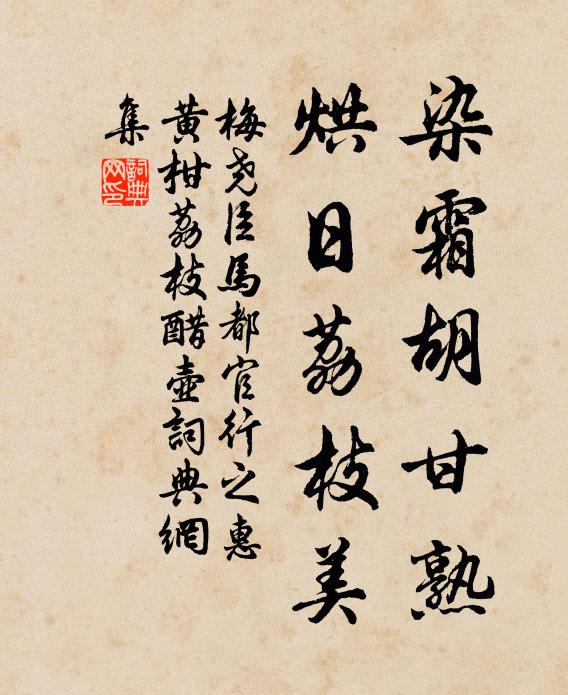 染霜胡甘熟
烘日荔枝美
梅尧臣馬都官行之惠
黄柑荔枝醋壺詞典網
集
詞典网印